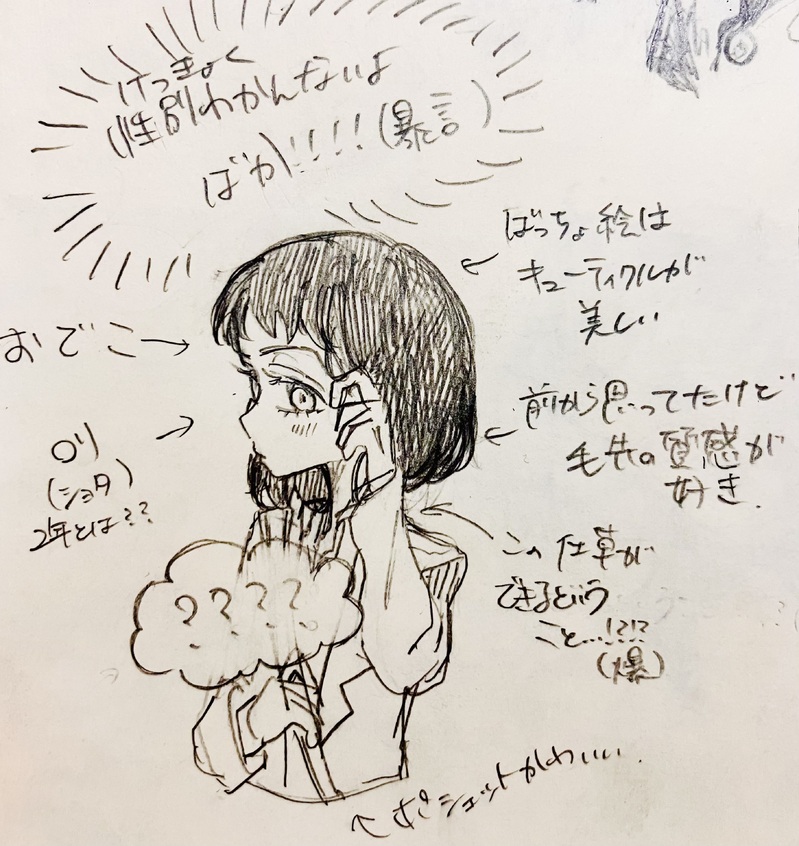 けっきょく
性別わかんないよ
ばか!!!!(暴言)
ばっちょ絵は
キューティクルが
美しい
おでこ→
前から思ってたけど
毛先の質感が
好き.
ロリ
(ショタ)
2年とは??
????
この仕草が
できるという
こと…!?!?
(爆)
ポシェットかわいい.